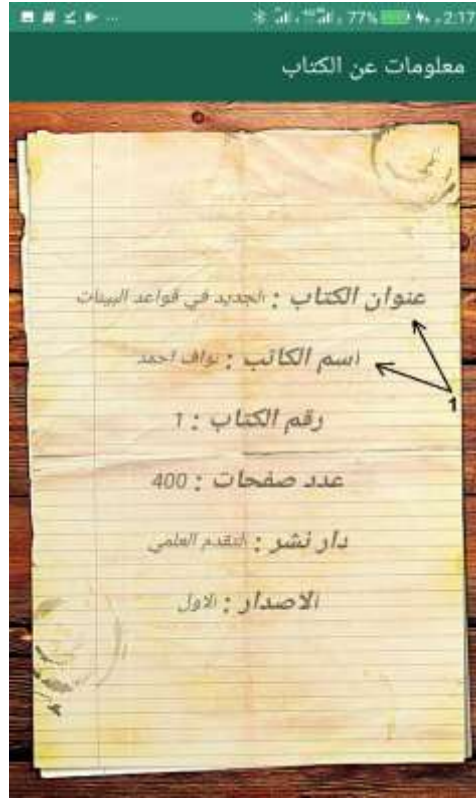 77% 2:17
معلومات عن الكتاب
عنوان الكتاب : الجديد في قواعد البينات
اسم الكاتب : نواف احمد
1
رقم الكتاب : 1
عدد صفحات : 400
دار نشر : التقدم العلمي
الاصدار : الاول